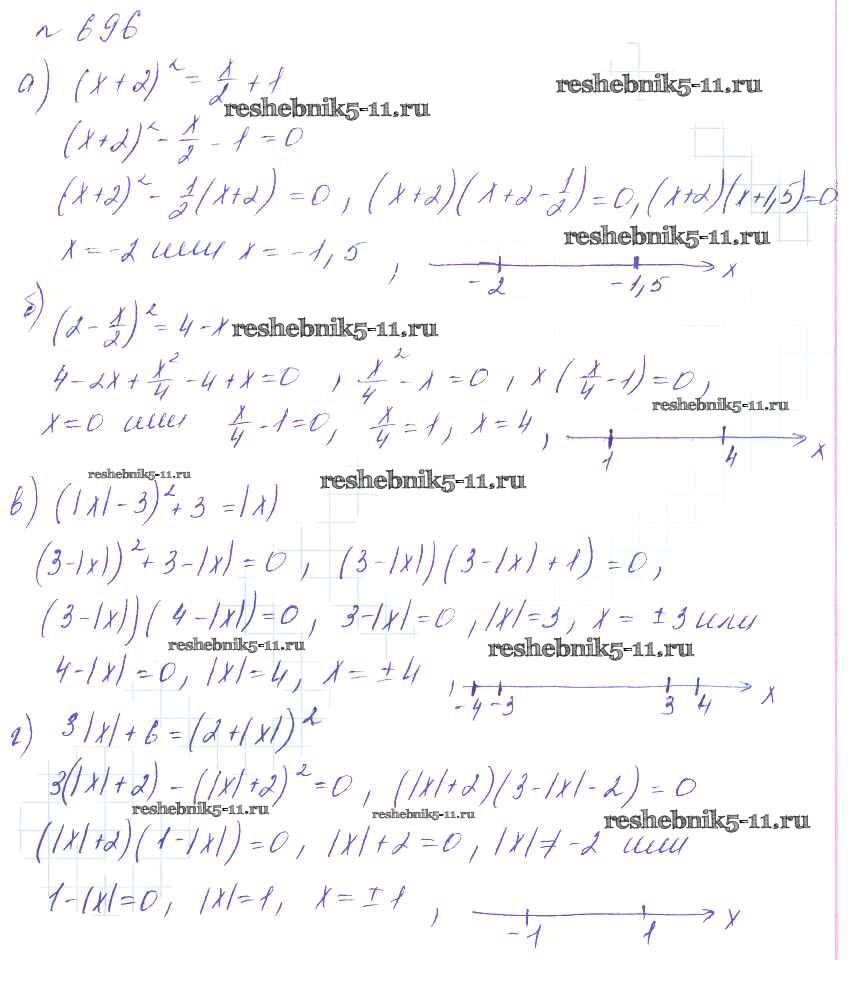 № 696
а) (x+2)² = x/2 + 1
reshebnik5-11.ru
reshebnik5-11.ru
(x+2)² - x/2 - 1 = 0
(x+2)² - 1/2(x+2) = 0, (x+2)(x+2-1/2) = 0, (x+2)(x+1,5) = 0
reshebnik5-11.ru
x = -2 или x = -1,5, -2 -1,5 x
б) (2 - x/2)² = 4 - x
reshebnik5-11.ru
4 - 2x + x²/4 - 4 + x = 0, x²/4 - x = 0, x(x/4 - 1) = 0,
reshebnik5-11.ru
x = 0 или x/4 - 1 = 0, x/4 = 1, x = 4, 1 4 x
reshebnik5-11.ru
reshebnik5-11.ru
в) (|x| - 3)² + 3 = |x|
(3-|x|)² + 3 - |x| = 0, (3-|x|)(3-|x|+1) = 0,
(3-|x|)(4-|x|) = 0, 3-|x| = 0, |x| = 3, x = ±3 или
reshebnik5-11.ru
reshebnik5-11.ru
4-|x| = 0, |x| = 4, x = ±4, -4 -3 3 4 x
г) 3|x| + 6 = (2+|x|)²
3(|x|+2) - (|x|+2)² = 0, (|x|+2)(3-|x|-2) = 0
reshebnik5-11.ru
reshebnik5-11.ru
reshebnik5-11.ru
(|x|+2)(1-|x|) = 0, |x|+2 = 0, |x| ≠ -2 или
1-|x| = 0, |x| = 1, x = ±1, -1 1 x